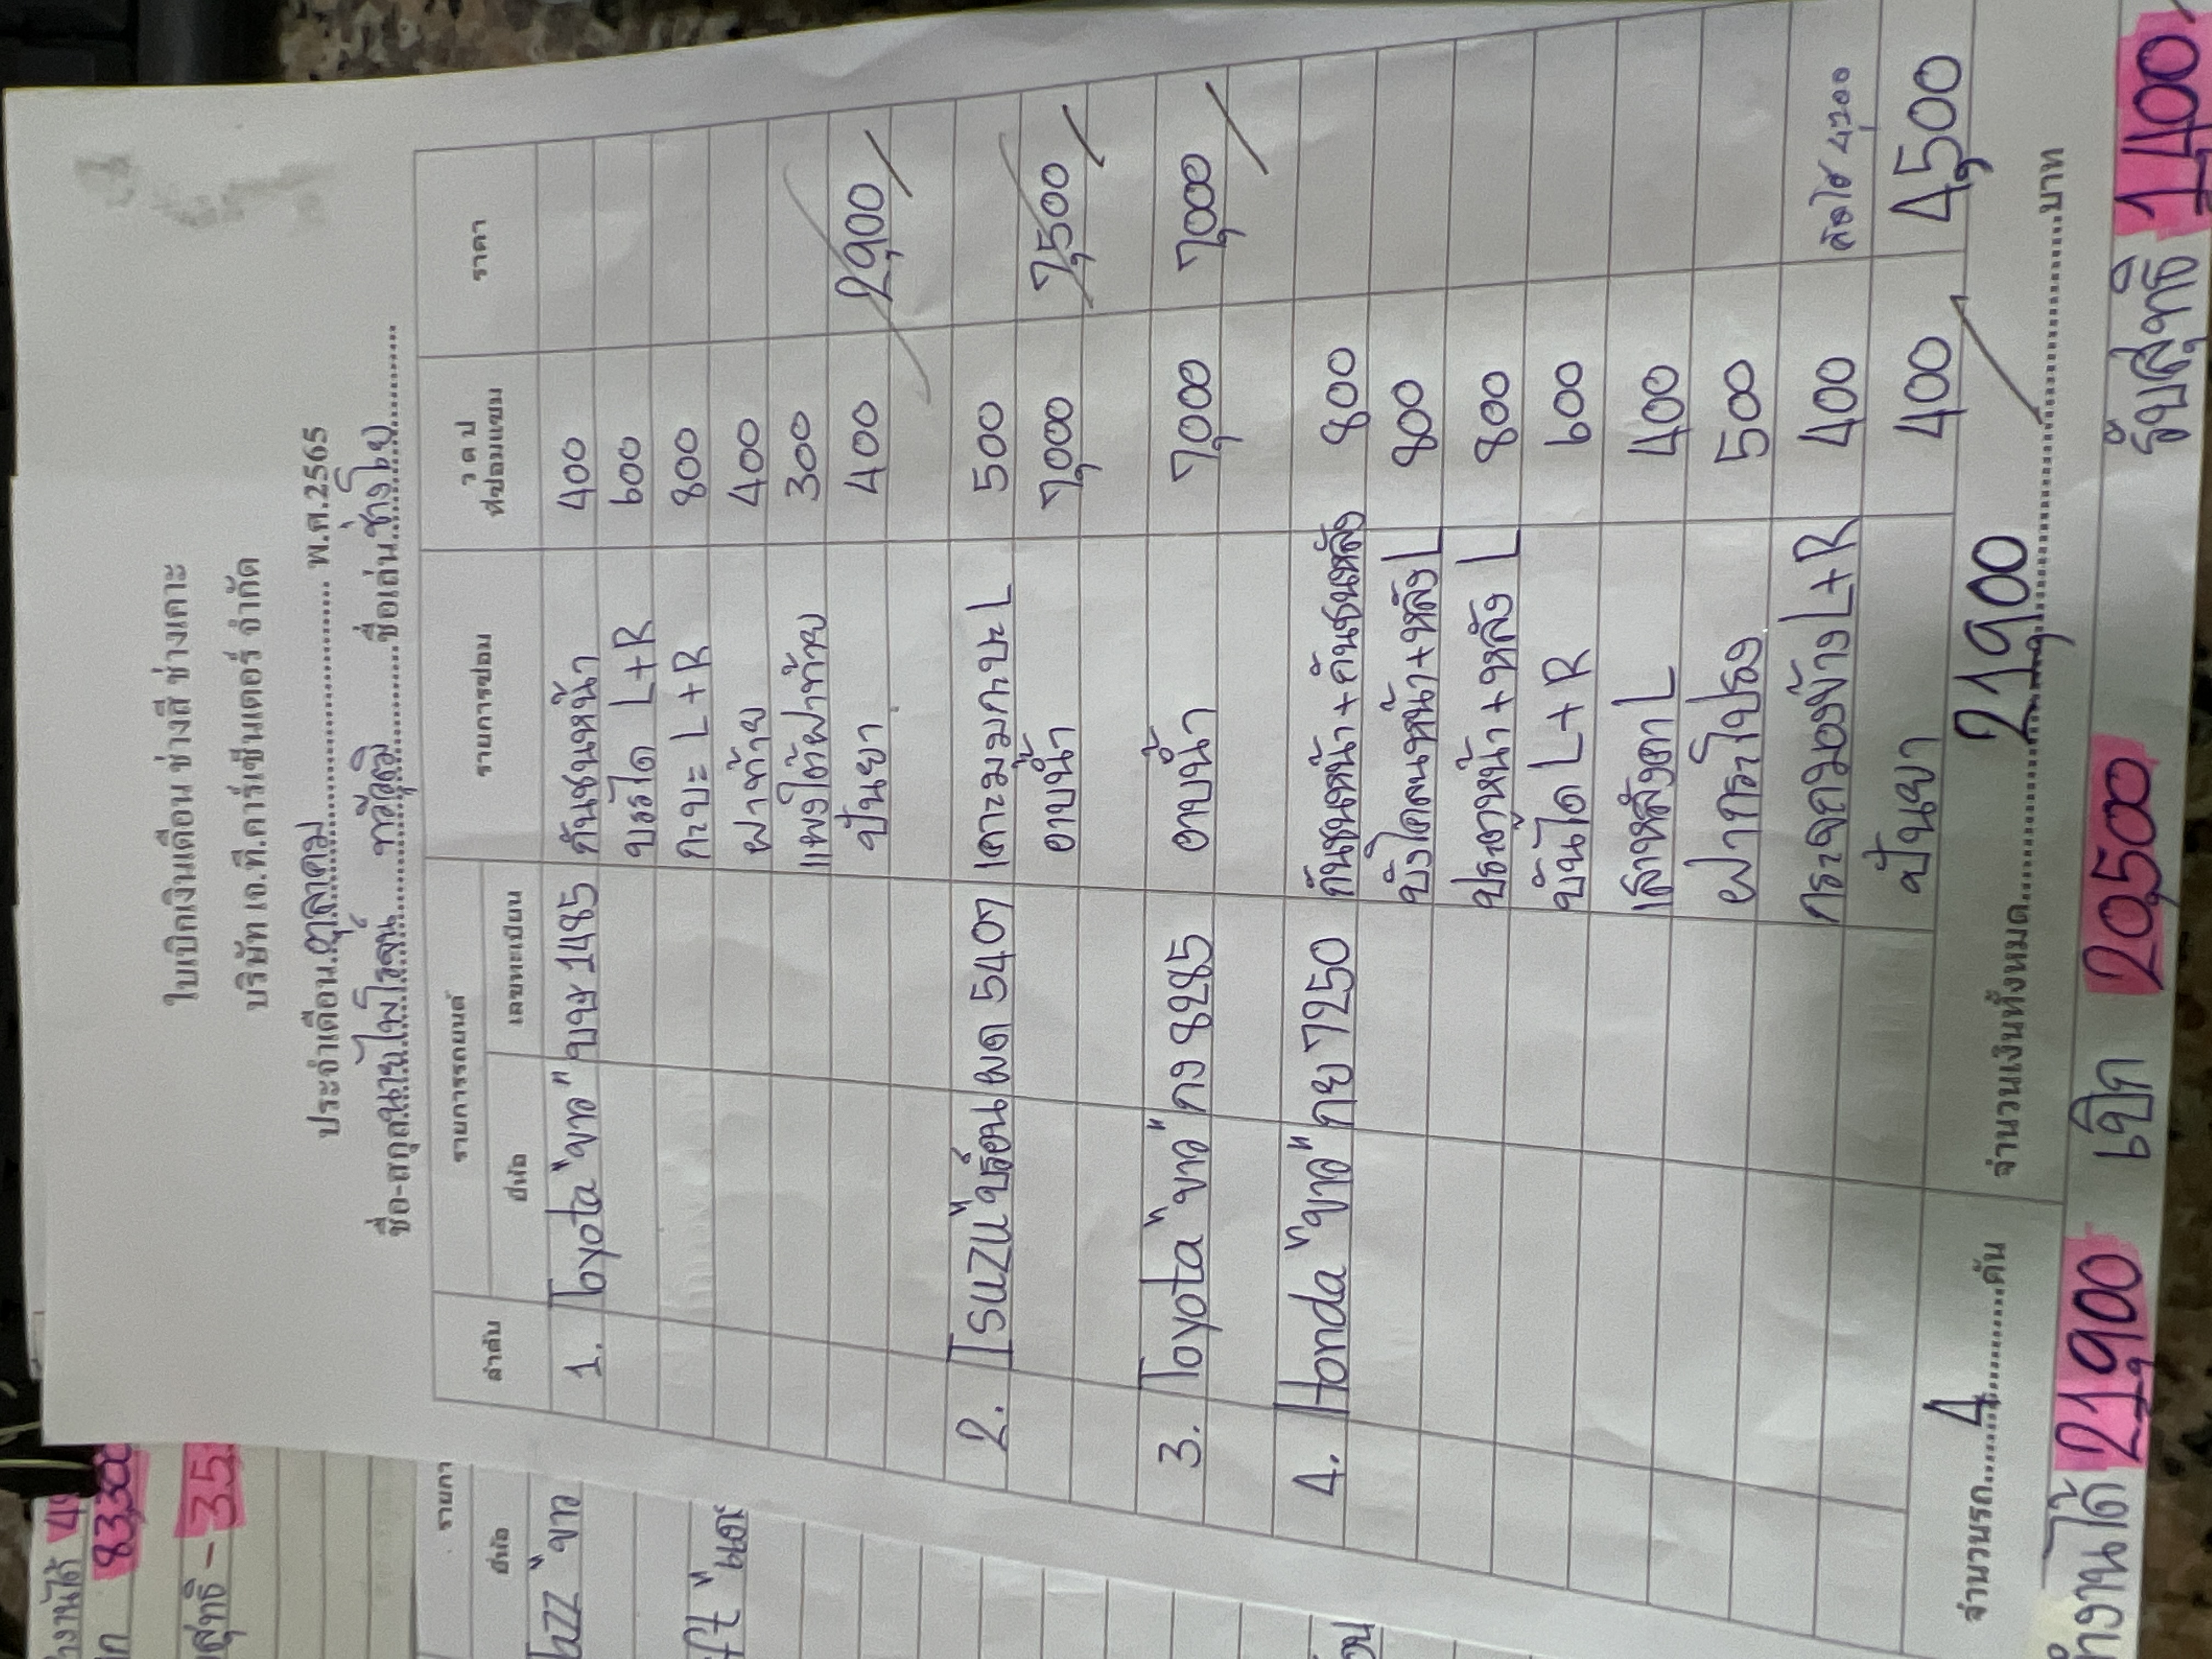 ใบเบิกเงินเดือน ช่างสี ช่างเคาะ
บริษัท เอ.ที.คาร์เซ็นเตอร์ จำกัด
ประจำเดือน ตุลาคม พ.ศ.2565
ชื่อ-สกุล นายไพโรจน์ ชื่อเล่น ช่างโย
ลำดับ รายการรถยนต์ รายการซ่อม ว ด ป ที่ซ่อมแซม ราคา
ยี่ห้อ เลขทะเบียน
1. Toyota "ขาว" บษ 1485 กันชนหน้า 400
บรรได L+R 600
กะบะ L+R 800
ฝาท้าย 400
แผงใต้ฝาท้าย 300
ปั่นยา 400 2,900
2. ISUZU "บรอน ผด 5407 เคาะมุมกะบะ L 500
อาบน้ำ 7,000 7,500
3. Toyota "ขาว" กง 8285 อาบน้ำ 7,000 7,000
4. Honda "ขาว" กย 7250 กันชนหน้า+กันชนหลัง 800
บังโคลนหน้า+หลัง L 800
ประตูหน้า+หลัง L 800
บันได L+R 600
เสาหลังคา L 400
ฝากระโปรง 500
กระจกมองข้าง L+R 400 4700
ปั่นยา 400 4,500
จำนวนรถ 4 คัน จำนวนเงินทั้งหมด 21,900 บาท
งานได้ 21,900 เบิก 20,500 รับสุทธิ 1,400
งานได้
83,300
สุทธิ - 35
ยี่ห้อ
azz "ขาว
ft "แดง